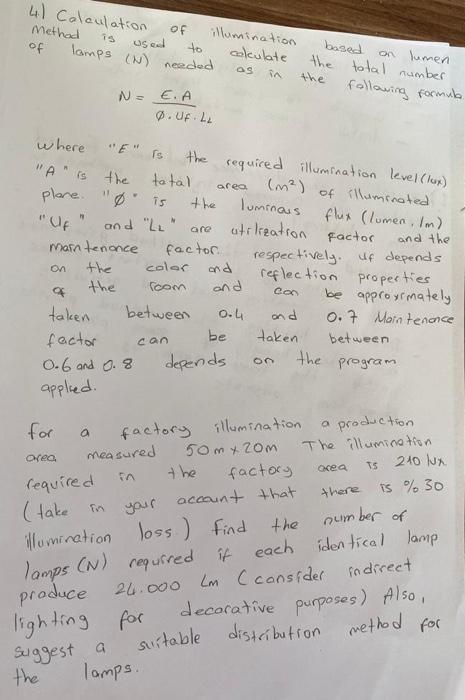 4) Calculation of illumination based on lumen
Method is used to calculate the total number
of lamps (N) needed as in the following formula
N = E.A
Ø.Uf.LL
where "E" is the required illumination level (lux)
"A" is the total area (m²) of illuminated
plane. "Ø" is the luminous flux (lumen, lm)
"Uf" and "LL" are utilization factor and the
maintenance factor. respectively. Uf depends
on the color and reflection properties
of the room and can be approximately
taken between 0.4 and 0.7 Maintenance
factor can be taken between
0.6 and 0.8 depends on the program
applied.
for a factory illumination a production
area measured 50m x 20m The illumination
required in the factory area is 210 lux
(take in your account that there is %30
illumination loss.) find the number of
lamps (N) required if each identical lamp
produce 24.000 Lm (consider indirect
lighting for decorative purposes) Also,
suggest a suitable distribution method for
the lamps.